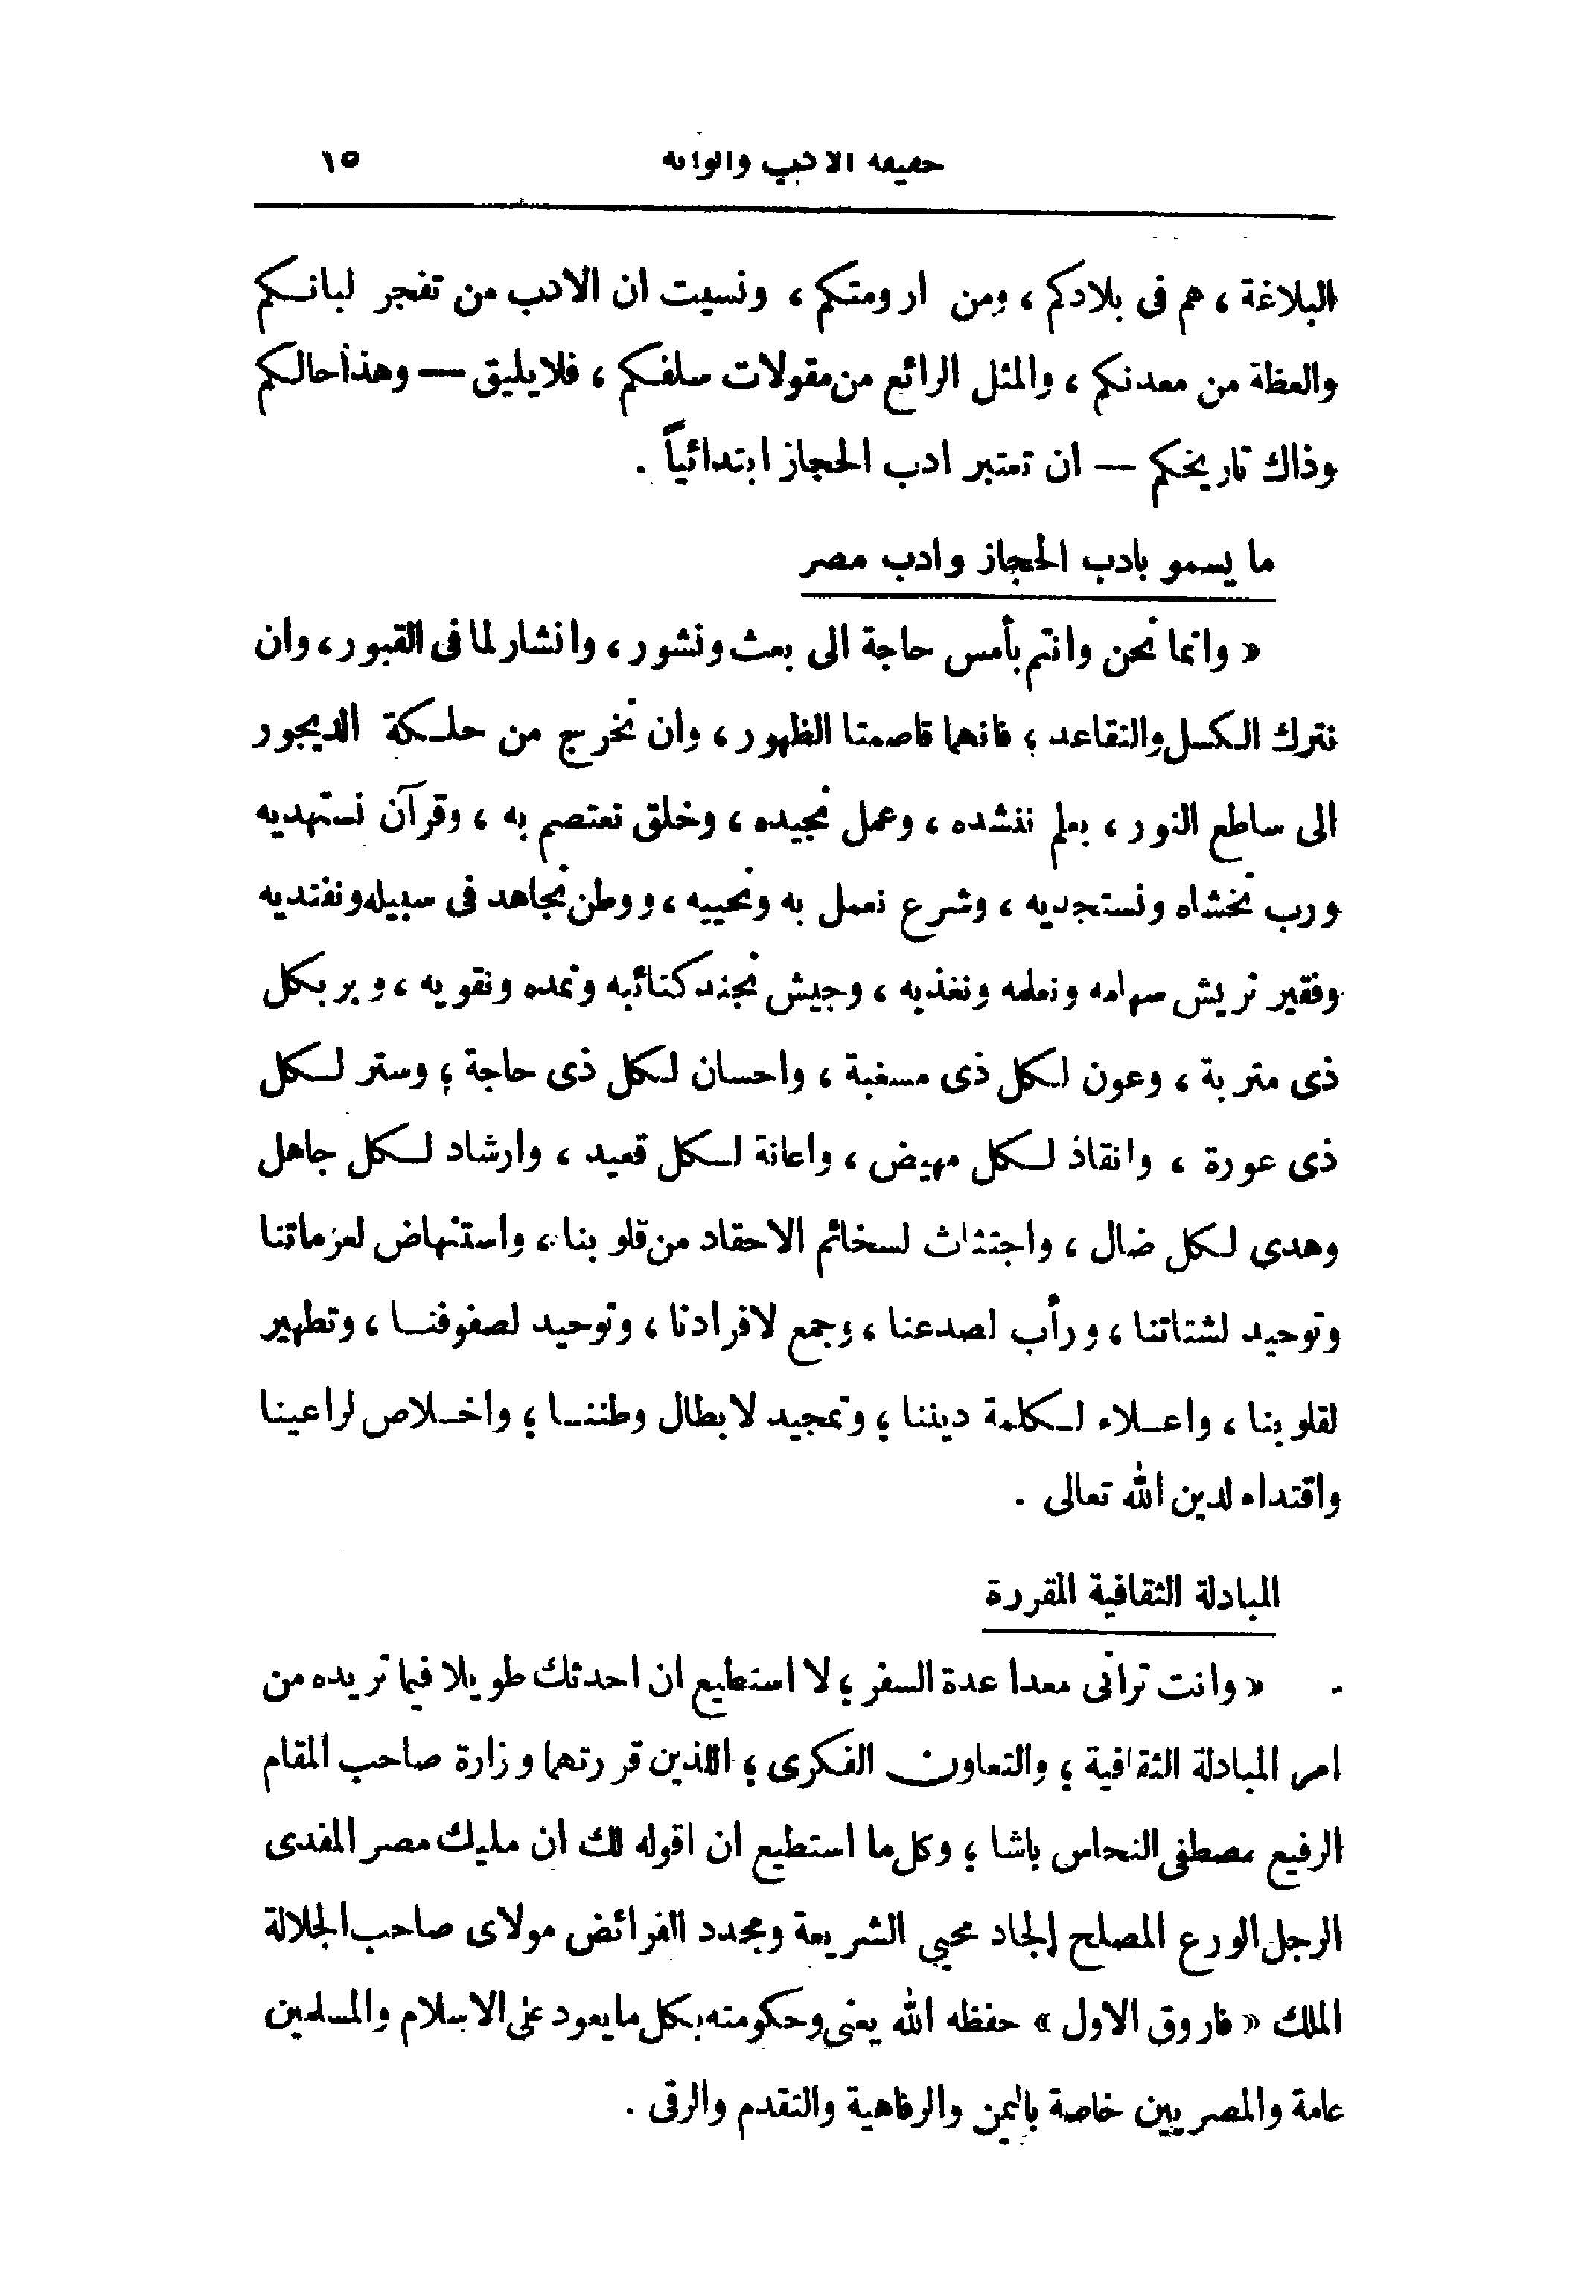 حقيقة الادب والوانه ١٥
البلاغة ، هم فى بلادكم ، ومن ارومتكم ، ونسيت ان الادب من تفجر لبانكم
والعظة من معدنكم ، والمثل الرائع من مقولات سلفكم ، فلا يليق — وهذا حالكم
وذاك تاريخكم — ان تعتبر ادب الحجاز ابتدائياً .
ما يسمو بادب الحجاز وادب مصر
« وانما نحن وانتم بأمس حاجة الى بعث ونشور ، وانشار لما فى القبور ، وان
نترك الكسل والتقاعد ؛ فانهما قاصمتا الظهور ، وان نخرج من حلكة الديجور
الى ساطع النور ، بعلم ننشده ، وعمل نجيده ، وخلق نعتصم به ، وقرآن نستهديه
ورب نخشاه ونستجديه ، وشرع نعمل به ونحييه ، ووطن نجاهد فى سبيله ونفتديه
وفقير نريش سهامه ونعلمه ونغذيه ، وجيش نجند كتائبه ونمده ونقويه ، وبر بكل
ذى متربة ، وعون لكل ذى مسغبة ، واحسان لكل ذى حاجة ؛ وستر لكل
ذى عورة ، وانقاذ لكل مهيض ، واعانة لكل قعيد ، وارشاد لكل جاهل
وهدى لكل ضال ، واجتثاث لسخائم الاحقاد من قلوبنا ، واستنهاض لعزماتنا
وتوحيد لشتاتنا ، ورأب لصدعنا ، وجمع لافرادنا ، وتوحيد لصفوفنا ، وتطهير
لقلوبنا ، واعلاء لكلمة ديننا ؛ وتمجيد لابطال وطننا ؛ واخلاص لراعينا
واقتداء لدين الله تعالى .
المبادلة الثقافية المقررة
« وانت ترانى معدا عدة السفر ؛ لا استطيع ان احدثك طويلا فيما تريده من
امر المبادلة الثقافية ؛ والتعاون الفكرى ؛ اللذين قررتهما وزارة صاحب المقام
الرفيع مصطفى النحاس باشا ؛ وكل ما استطيع ان اقوله لك ان مليك مصر المفدى
الرجل الورع المصلح الجاد محيي الشريعة ومجدد الفرائض مولاى صاحب الجلالة
الملك « فاروق الاول » حفظه الله يعنى وحكومته بكل ما يعود على الاسلام والمسلمين
عامة والمصريين خاصة باليمن والرفاهية والتقدم والرقى .